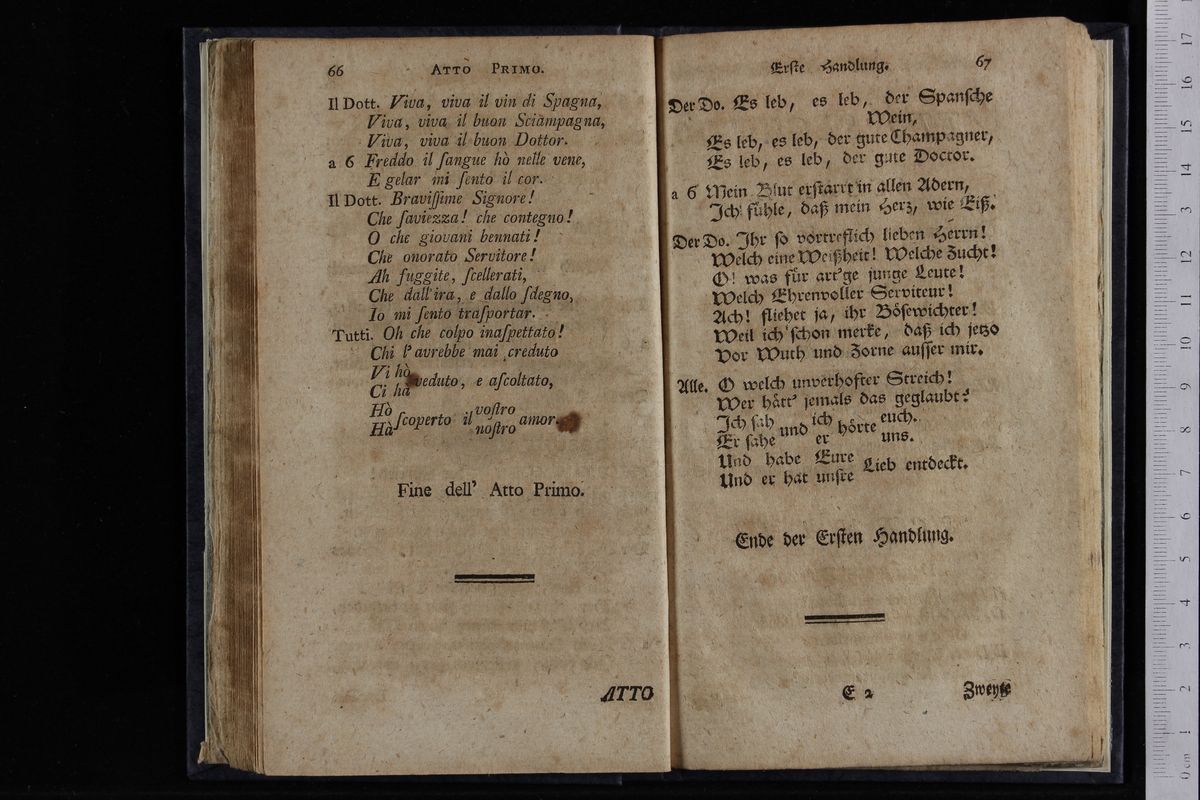 66 ATTO PRIMO.
Il Dott. Viva, viva il vin di Spagna,
Viva, viva il buon Sciampagna,
Viva, viva il buon Dottor.
a 6 Freddo il ſangue hò nelle vene,
E gelar mi ſento il cor.
Il Dott. Braviſſime Signore!
Che ſaviezza! che contegno!
O che giovani bennati!
Che onorato Servitore!
Ah fuggite, ſcellerati,
Che dall'ira, e dallo ſdegno,
Io mi ſento traſportar.
Tutti. Oh che colpo inaſpettato!
Chi l'avrebbe mai creduto
Vi hò
Ci ha veduto, e aſcoltato,
Hò ſcoperto il voſtro amor.
Hà noſtro
Fine dell' Atto Primo.
ATTO
Erſte Handlung. 67
Der Do. Es leb, es leb, der Spanſche
Wein,
Es leb, es leb, der gute Champagner,
Es leb, es leb, der gute Doctor.
a 6 Mein Blut erſtarrt in allen Adern,
Ich fühle, daß mein Herz, wie Eiß.
Der Do. Ihr ſo vortreflich lieben Herrn!
Welch eine Weißheit! Welche Zucht!
O! was für art'ge junge Leute!
Welch Ehrenvoller Serviteur!
Ach! fliehet ja, ihr Böſewichter!
Weil ich ſchon merke, daß ich jetzo
Vor Wuth und Zorne auſſer mir.
Alle. O welch unverhofter Streich!
Wer hätt' jemals das geglaubt?
Ich ſah und ich hörte euch.
Er ſahe er uns.
Und habe Eure Lieb entdeckt.
Und er hat unſre
Ende der Erſten Handlung.
E 2 Zweyte